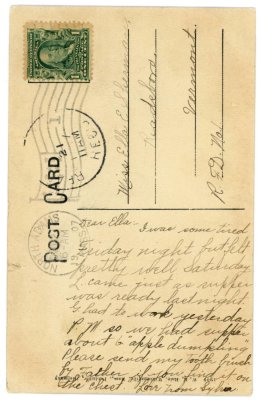 POST CARD
Miss Ella E. Sherman
Readsboro
Vermont
R F D No.
Dear Ella:- I was some tired
Friday night but felt
pretty well Saturday
I came just as supper
was ready last night.
G had to work yesterday
P.M so we had supper
about 6 "apple dumpling"
Please send my tooth brush
by Father if you find it on
the chest. Love from Sylvia